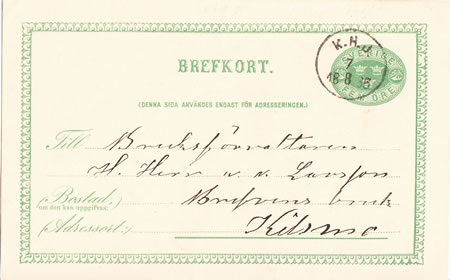 K.H.J.
7
18 8 85
SVERIGE
FEM ÖRE
BREFKORT.
(DENNA SIDA ANVÄNDES ENDAST FÖR ADRESSERINGEN.)
Till Bruksförvaltaren
H. Herr v. v. Larsson
(Bostad,
om den kan uppgifvas:)
Brefvens bruk
(Adressort:) Kilsmo